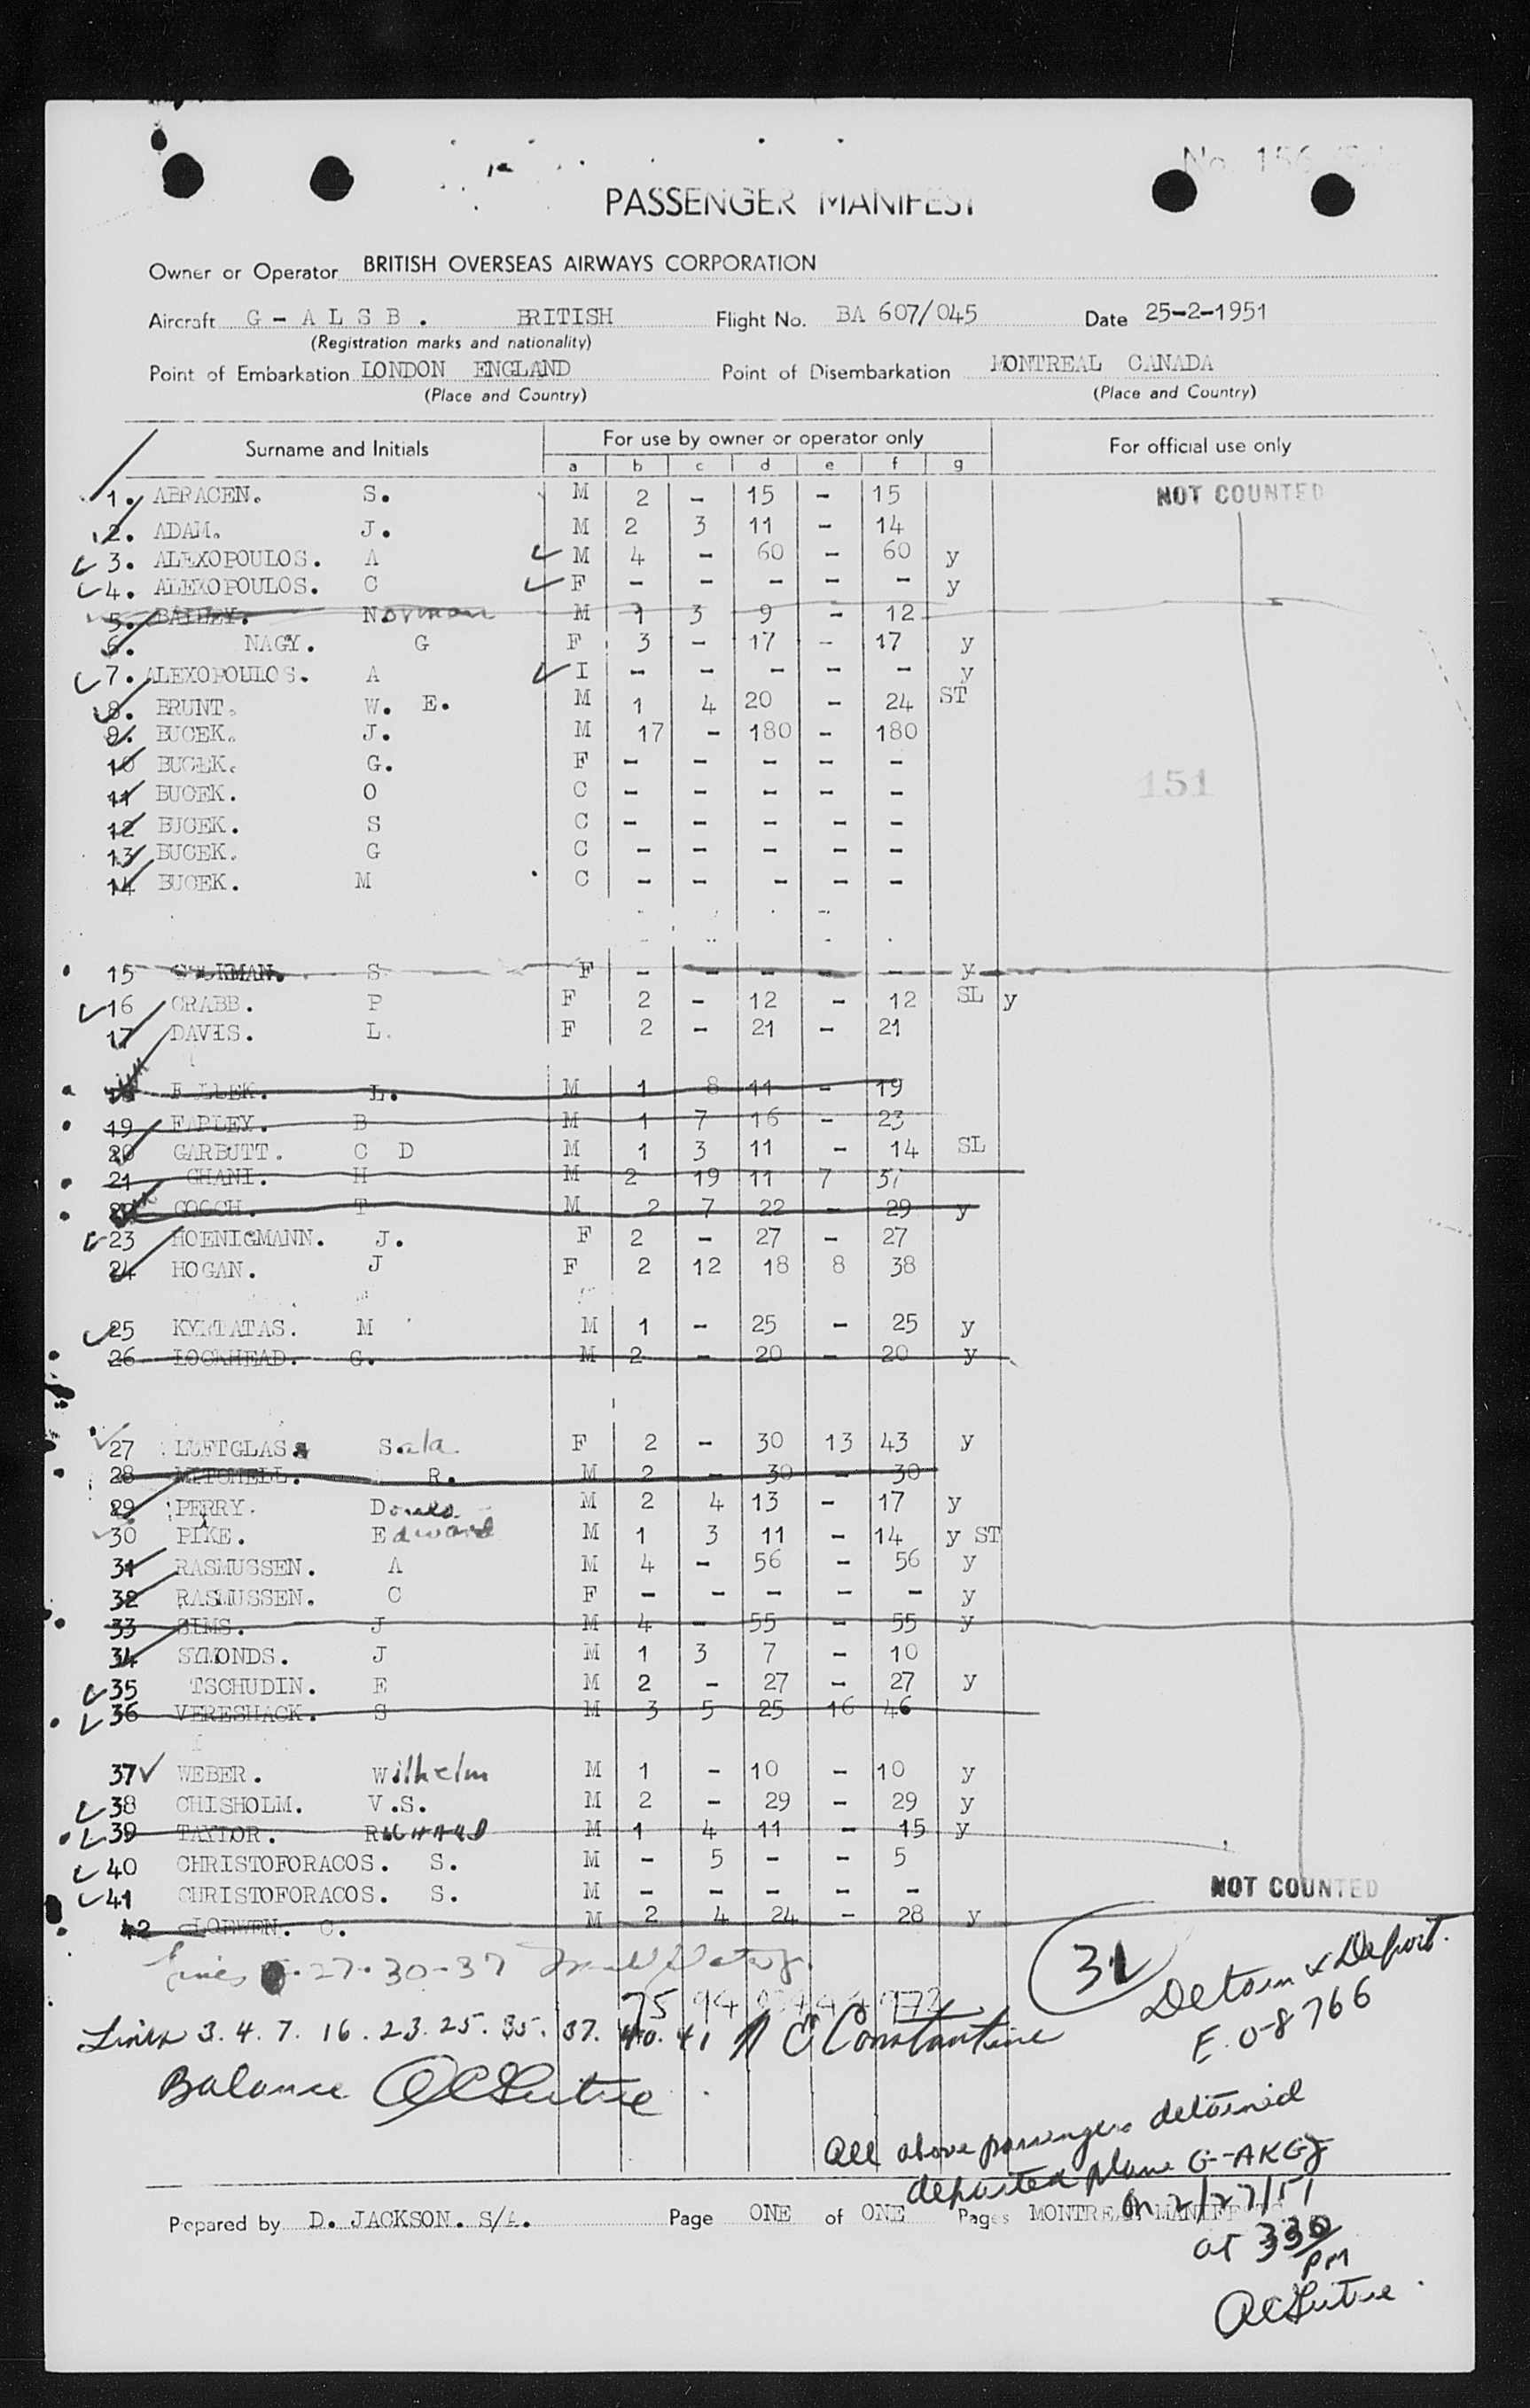 No. 156
PASSENGER MANIFEST
Owner or Operator BRITISH OVERSEAS AIRWAYS CORPORATION
Aircraft G - A L S B . BRITISH Flight No. BA 607/045 Date 25-2-1951
(Registration marks and nationality)
Point of Embarkation LONDON ENGLAND Point of Disembarkation MONTREAL CANADA
(Place and Country) (Place and Country)
Surname and Initials For use by owner or operator only For official use only
a b c d e f g
1. ABRACEN. S. M 2 - 15 - 15 NOT COUNTED
2. ADAM. J. M 2 3 11 - 14
3. ALEXOPOULOS. A M 4 - 60 - 60 y
4. ALEXOPOULOS. C F - - - - - y
5. BAILEY. Norman M 1 3 9 - 12
6. NAGY. G F 3 - 17 - 17 y
7. ALEXOPOULOS. A I - - - - - y
8. BRUNT. W. E. M 1 4 20 - 24 ST
9. BUCEK. J. M 17 - 180 - 180
10 BUCEK. G. F - - - - -
151
11 BUCEK. O C - - - - -
12 BUCEK. S C - - - - -
13 BUCEK. G C - - - - -
14 BUCEK. M C - - - - -
15 S F - - - - - y
16 CRABB. P F 2 - 12 - 12 SL y
17 DAVIS. L. F 2 - 21 - 21
18 L. M 1 8 11 - 19
19 FARLEY. B M 1 7 16 - 23
20 GARBUTT. C D M 1 3 11 - 14 SL
21 GHANI. H M 2 19 11 7 37
22 GOOCH. T M 2 7 22 - 29 y
23 HOENIGMANN. J. F 2 - 27 - 27
24 HOGAN. J F 2 12 18 8 38
25 KYRTATAS. M M 1 - 25 - 25 y
26 LOCKHEAD. G. M 2 - 20 - 20 y
27 LUFTGLAS. Sala F 2 - 30 13 43 y
28 MITCHELL. R. M 2 - 30 - 30
29 PERRY. M 2 4 13 - 17 y
30 PIKE. Edward M 1 3 11 - 14 y ST
31 RASMUSSEN. A M 4 - 56 - 56 y
32 RASMUSSEN. C F - - - - - y
33 SIMS. J M 4 - 55 - 55 y
34 SYMONDS. J M 1 3 7 - 10
35 TSCHUDIN. E M 2 - 27 - 27 y
36 VERESHACK. S M 3 5 25 16 46
37 WEBER. Wilhelm M 1 - 10 - 10 y
38 CHISHOLM. V.S. M 2 - 29 - 29 y
39 TAYLOR. Richard M 1 4 11 - 15 y
40 CHRISTOFORACOS. S. M - 5 - - 5
NOT COUNTED
41 CHRISTOFORACOS. S. M - - - - -
42 LOEWEN. C. M 2 4 24 - 28 y
Lines 27-30-37
31
Detain & Deport.
75 94
E.O-8766
Lines 3. 4. 7. 16. 23. 25. 35. 37. 40. 41 Constantine
Balance
All above passengers detained
deported plane G-AKGJ
on 2/27/51
Prepared by D. JACKSON. S/A. Page ONE of ONE Pages MONTREAL MANIFESTS
at 330
PM